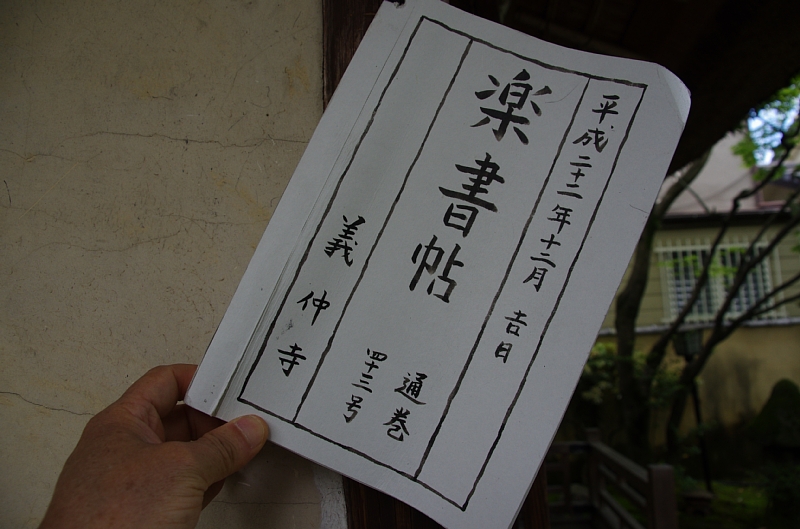 平成二十二年十二月 吉日
楽書帖
通巻
四十三号
義仲寺